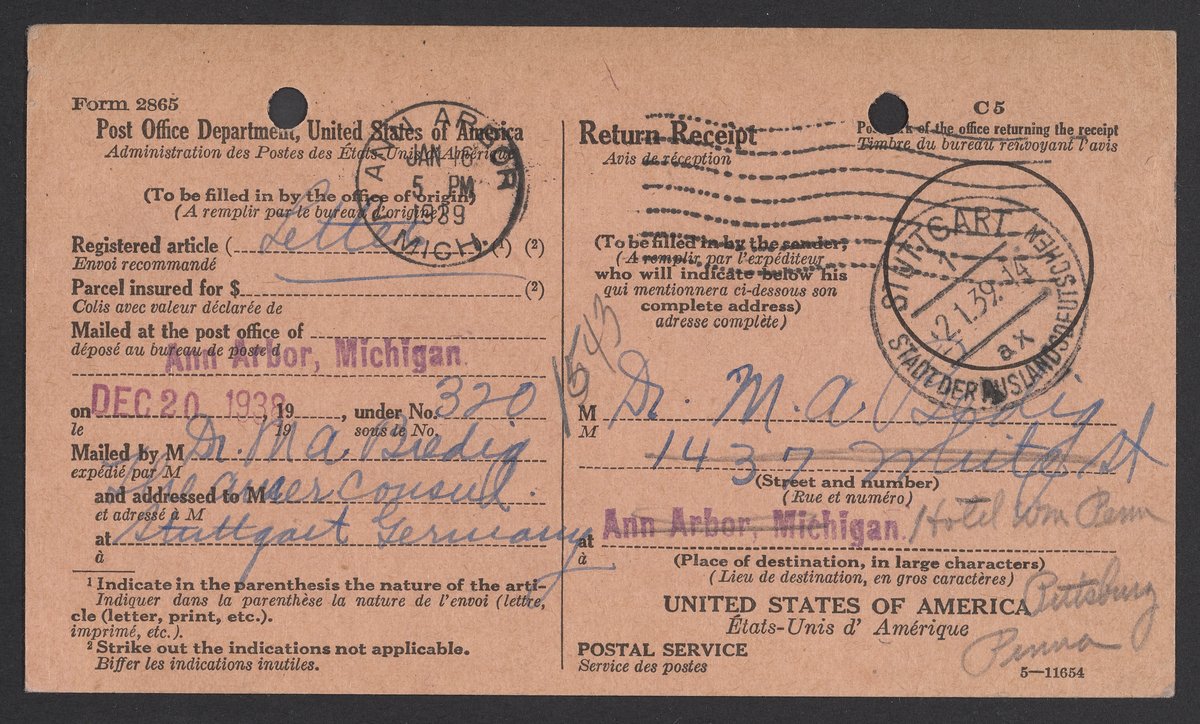 Form 2865
Post Office Department, United States of America
Administration des Postes des États-Unis d'Amérique
(To be filled in by the office of origin)
(A remplir par le bureau d'origine)
Registered article ( Letter ) (1) (2)
Envoi recommandé
Parcel insured for $ (2)
Colis avec valeur déclarée de
Mailed at the post office of
déposé au bureau de poste d
Ann Arbor, Michigan.
on DEC 20 1938 19 , under No. 320
le 19 sous le No.
Mailed by M Dr. M A Bredig
expédié par M
and addressed to M The Amer Consul.
et adressé à M
at Stuttgart Germany
à
1 Indicate in the parenthesis the nature of the arti-
Indiquer dans la parenthèse la nature de l'envoi (lettre,
cle (letter, print, etc.).
imprimé, etc.).
2 Strike out the indications not applicable.
Biffer les indications inutiles.
ANN ARBOR
JAN 16
5 PM
1939
MICH.
1543
C 5
Return Receipt
Avis de réception
Postmark of the office returning the receipt
Timbre du bureau renvoyant l'avis
(To be filled in by the sender,
(A remplir par l'expéditeur
who will indicate below his
qui mentionnera ci-dessous son
complete address)
adresse complète)
STUTTGART
1
-2.1.39.-14
ax
STADT DER AUSLANDSDEUTSCHEN
M Dr. M. A. Bredig
M
1437 St
(Street and number)
(Rue et numéro)
at Ann Arbor, Michigan. Hotel Wm Penn
à
(Place of destination, in large characters)
(Lieu de destination, en gros caractères)
Pittsburg
UNITED STATES OF AMERICA
États-Unis d' Amérique
Penna
POSTAL SERVICE
Service des postes
5—11654